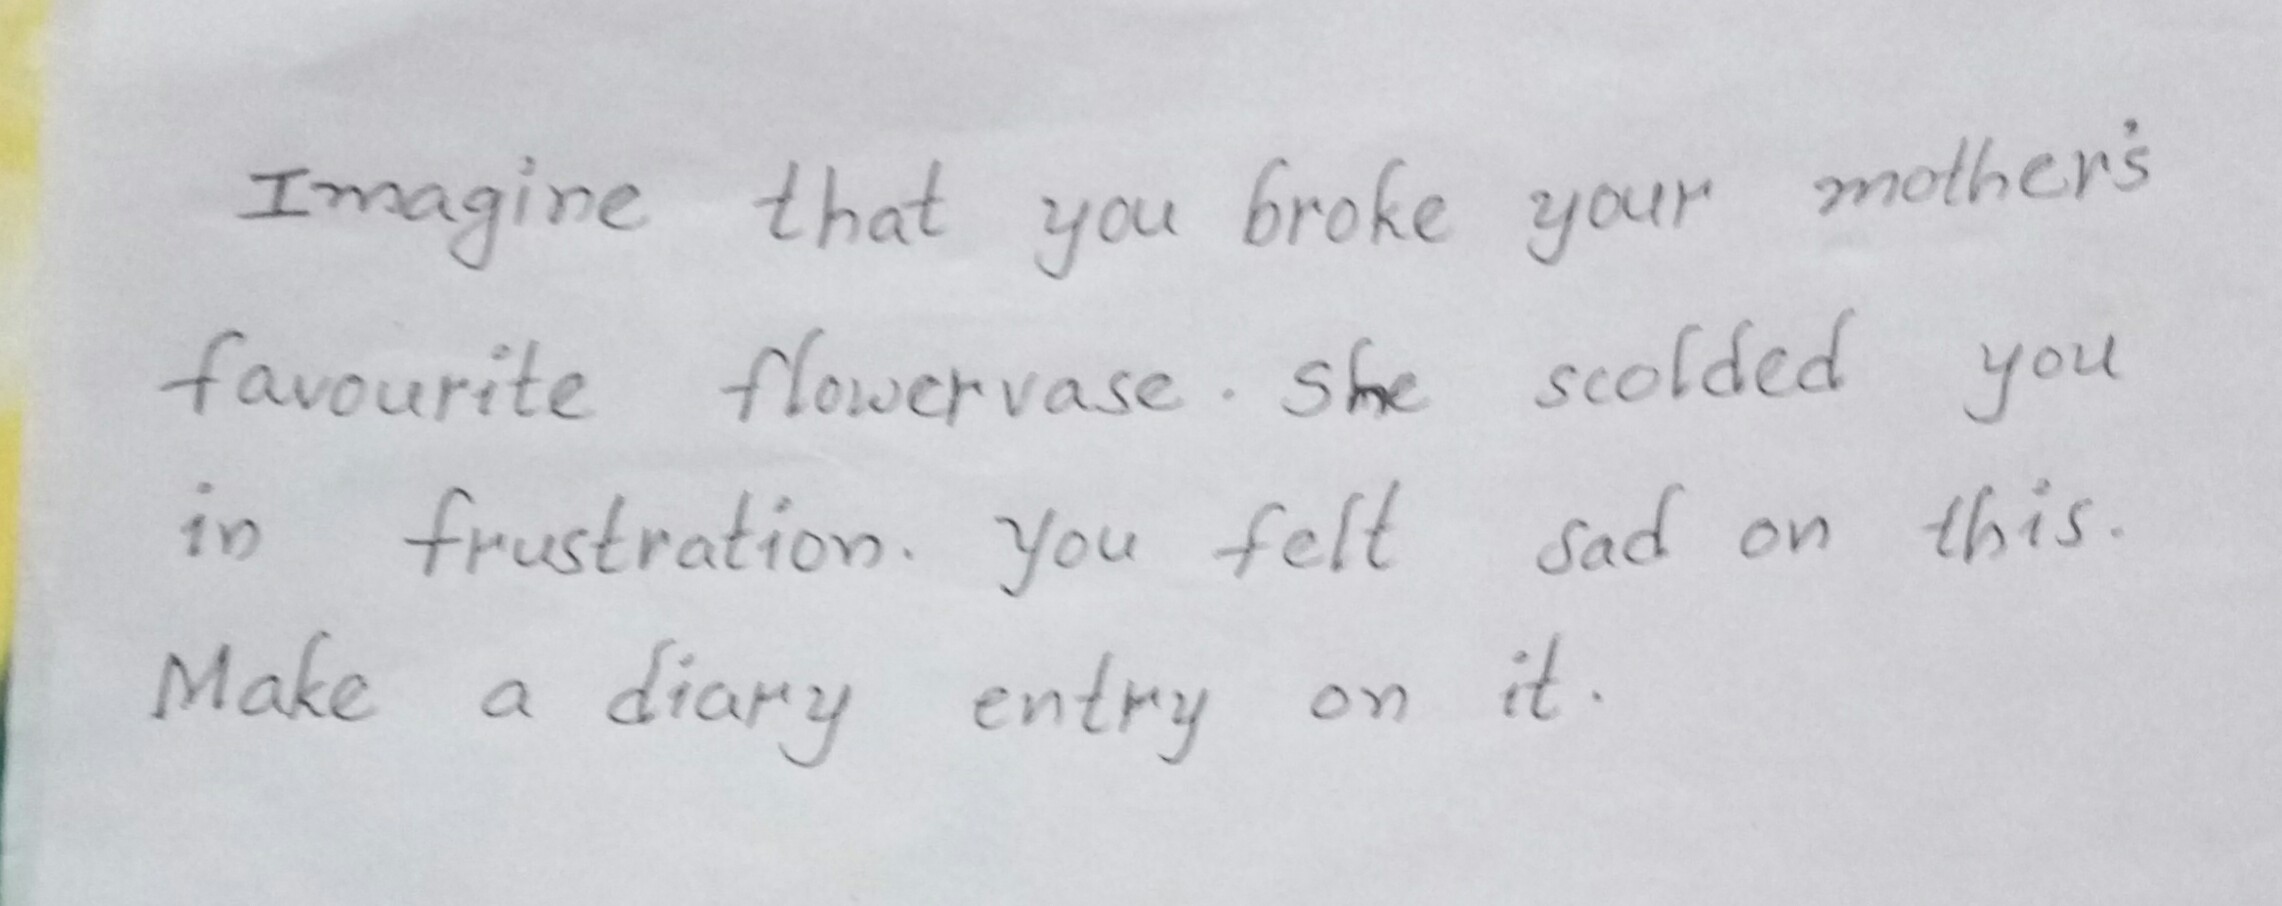 Imagine that you broke your mother's
favourite flowervase. She scolded you
in frustration. You felt sad on this.
Make a diary entry on it.